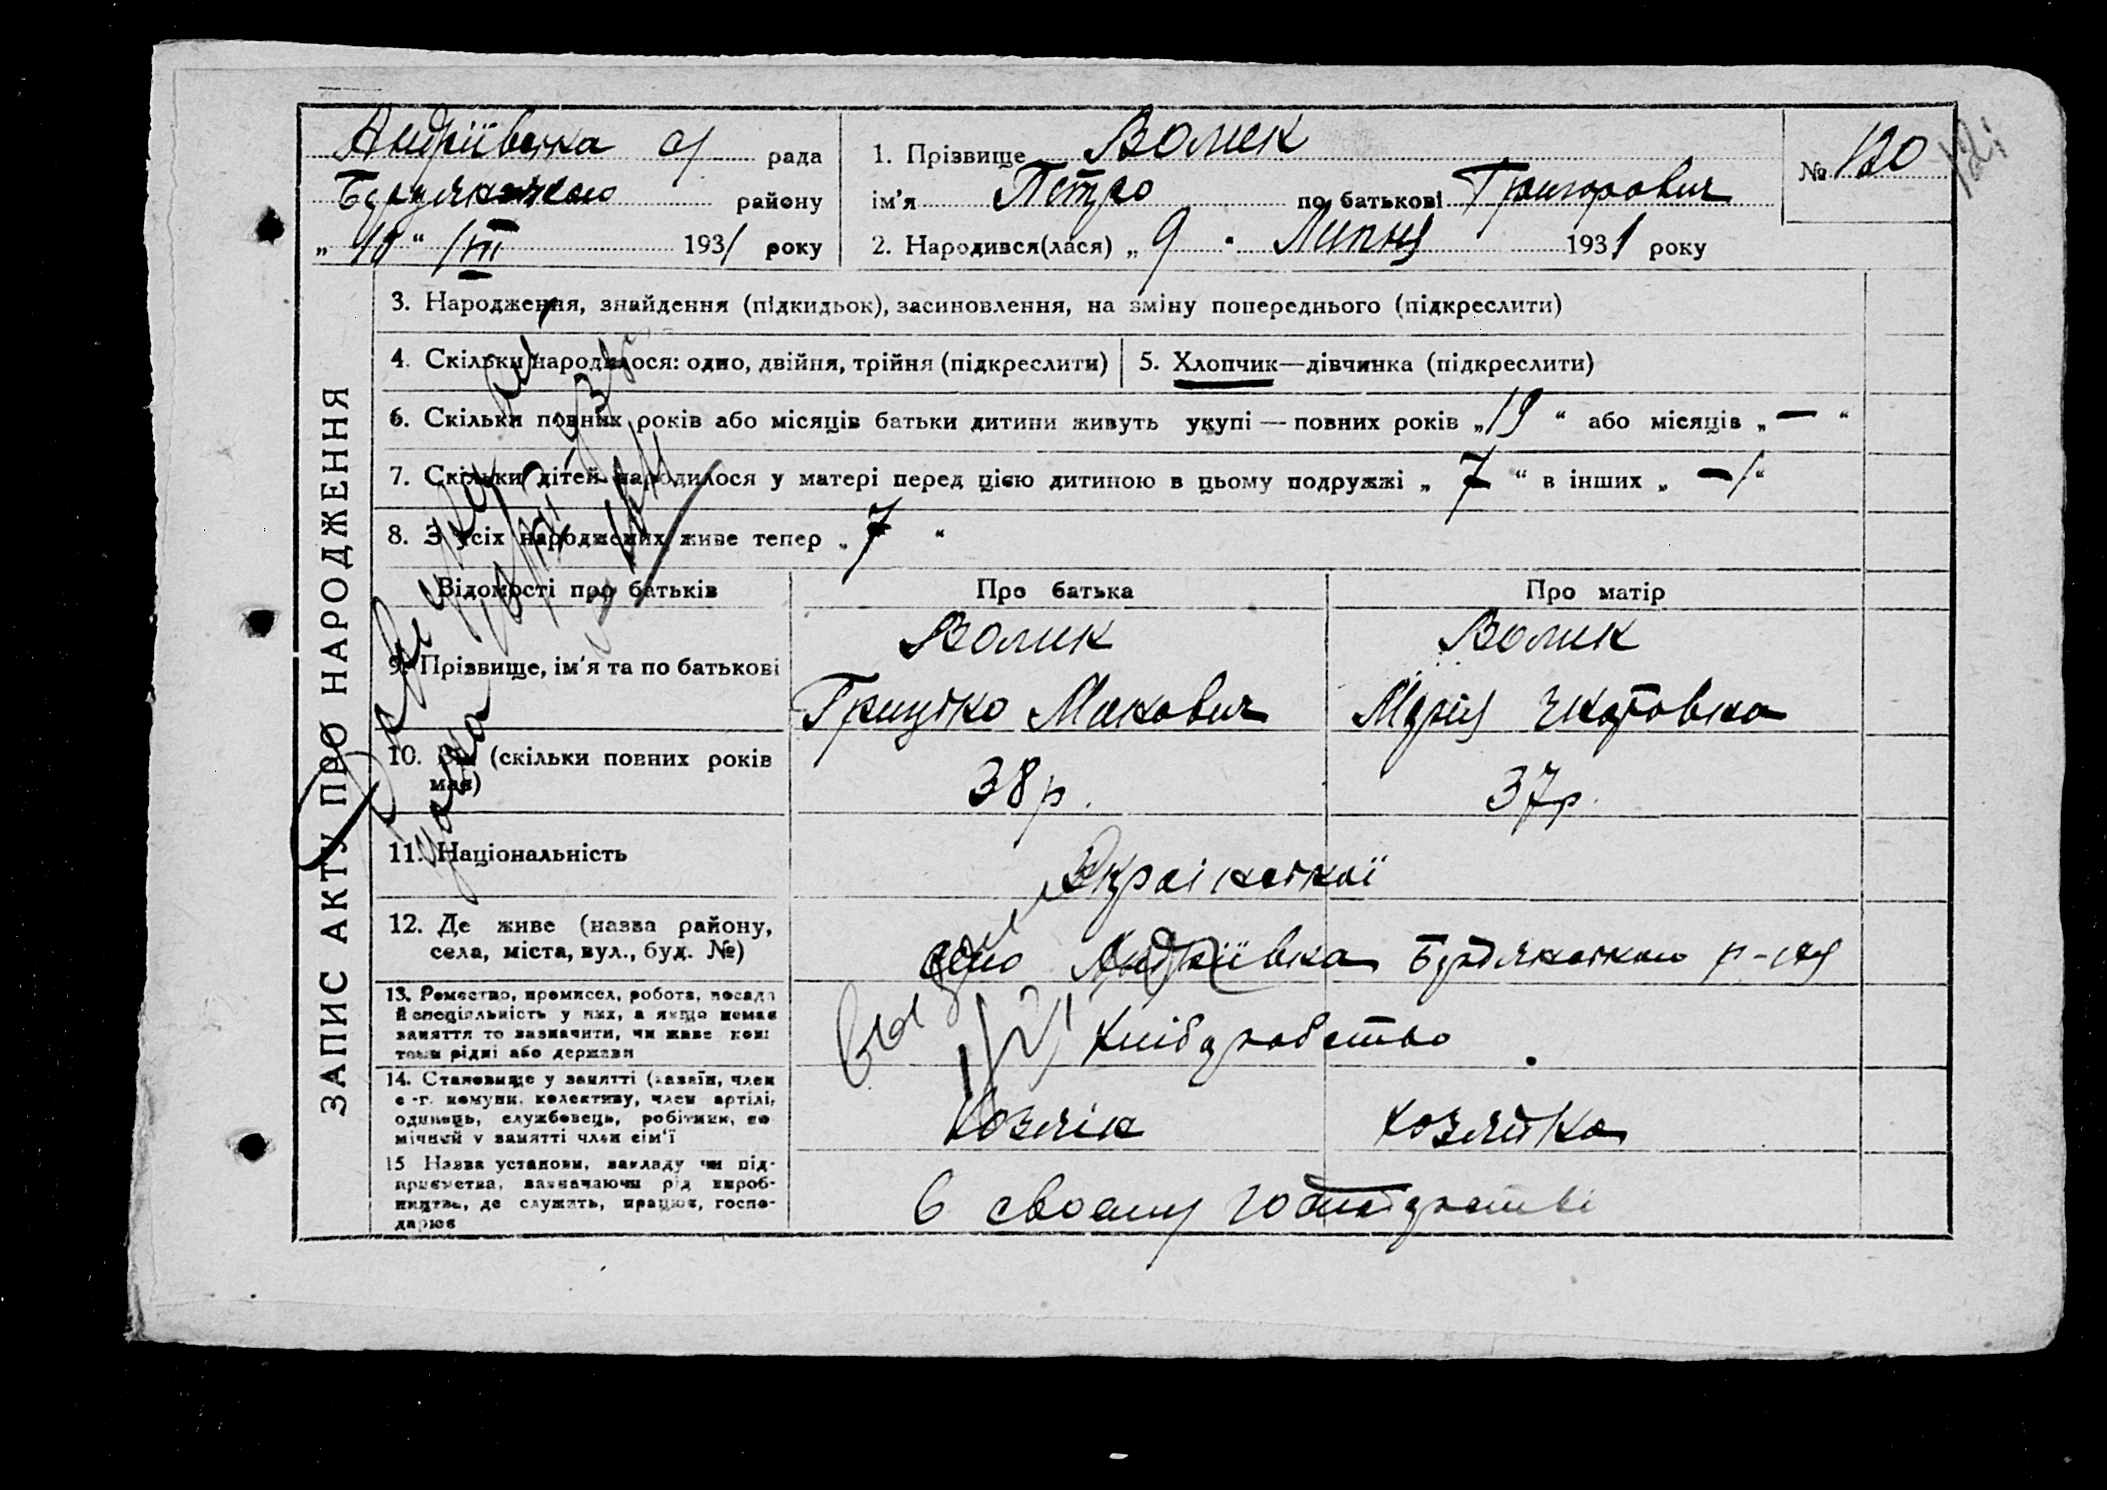 Андріївська с/ рада
Бердянського району
„ 10 “ VIII 1931 року
1. Прізвище Волик
ім'я Петро по батькові Григорович
2. Народився(лася) „ 9 “ Липня 1931 року
№ 120
121
ЗАПИС АКТУ ПРО НАРОДЖЕННЯ
3. Народження, знайдення (підкидьок), засиновлення, на зміну попереднього (підкреслити)
4. Скільки народилося: одно, двійня, трійня (підкреслити)
5. Хлопчик—дівчинка (підкреслити)
6. Скільки повних років або місяців батьки дитини живуть укупі — повних років „ 19 “ або місяців „ — “
7. Скільки дітей народилося у матері перед цією дитиною в цьому подружжі „ 7 “ в інших „ — “
8. З усіх народжених живе тепер „ 7 “
Відомості про батьків Про батька Про матір
9. Прізвище, ім'я та по батькові
Волик Волик
Грицько Макович Марія
10. Вік (скільки повних років має)
38 р. 37 р.
11. Національність
Української
12. Де живе (назва району, села, міста, вул., буд. №)
село Андріївка Бердянського р-ну
13. Ремество, промисел, робота, посада й спеціяльність у них, а якщо немає заняття то зазначити, чи живе коштами рідні або держави
Хліборобство
14. Становище у занятті (хазяїн, член с.-г. комуни, колективу, член артілі, одинець, службовець, робітник, помічний у занятті член сім'ї
хозяйка
15 Назва установи, закладу чи підприємства, зазначаючи рід виробництва, де служить, працює, господарює
в своему господарстві